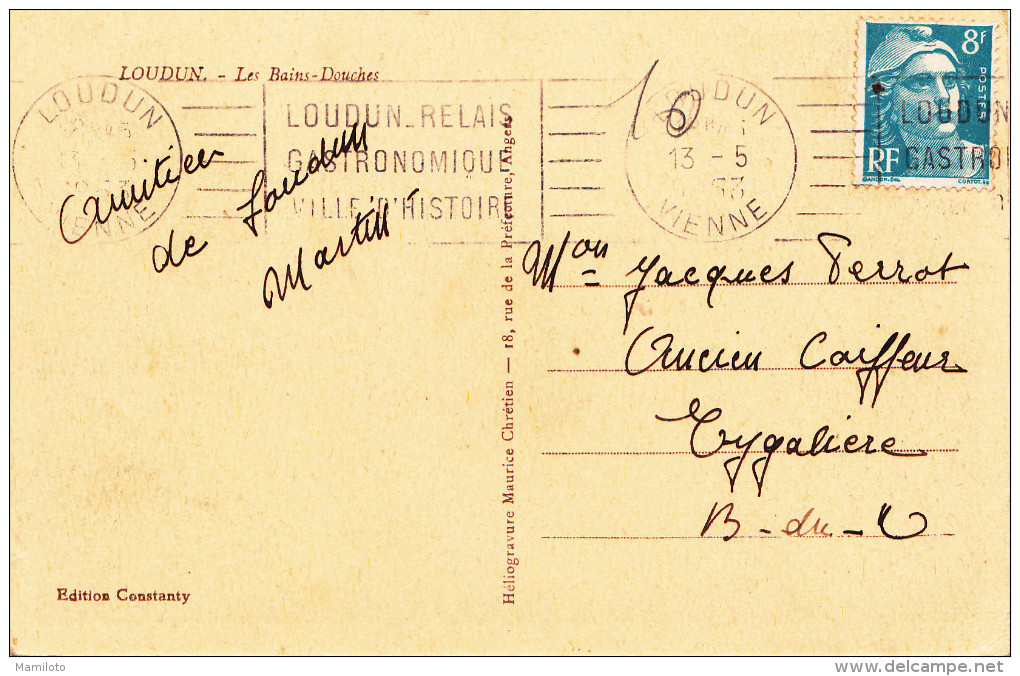 LOUDUN. - Les Bains-Douches
LOUDUN
VIENNE
LOUDUN_RELAIS
GASTRONOMIQUE
VILLE D'HISTOIRE
10
LOUDUN
13 - 5
53
VIENNE
8F
POSTES
RF
LOUDUN
GASTRO
Amitien
de Loudun
Martill
Mon Jacques Perrot
Ancien Coiffeur
Eygaliere
B-du-
Héliogravure Maurice Chrétien — 18, rue de la Préfecture, Angers
Edition Constanty
Mamiloto
www.delcampe.net